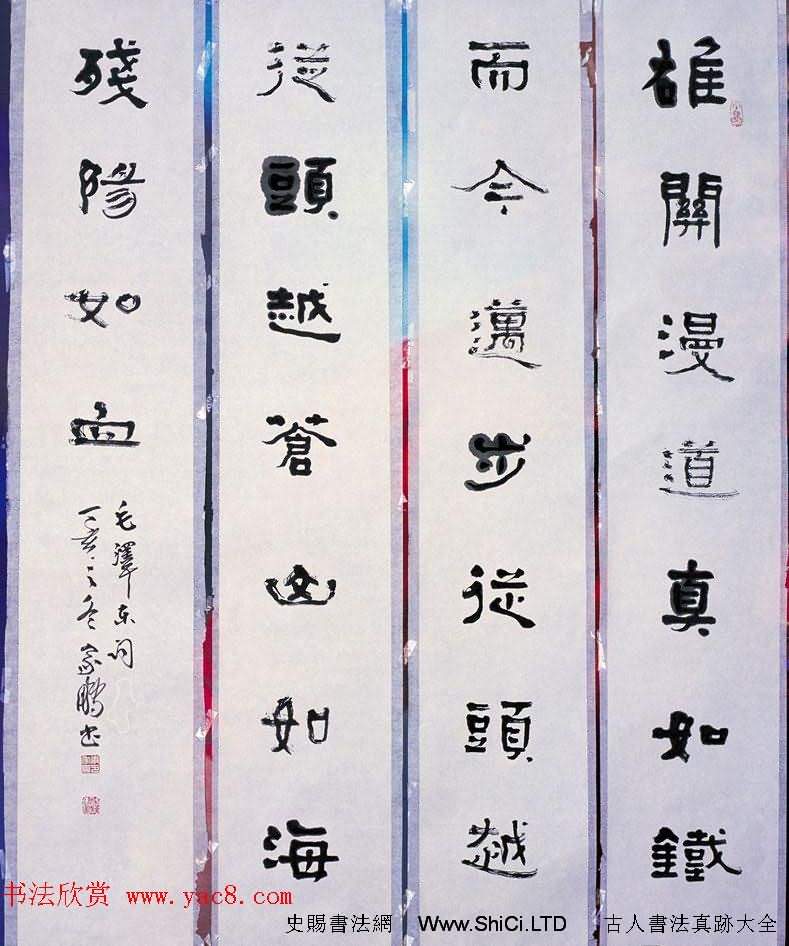 雄關漫道真如鐵
而今邁步從頭越
從頭越蒼山如海
殘陽如血
毛澤東詞
丁亥之冬家鵬書
书法欣赏 www.yac8.com
史賜書法網 Www.ShiCi.LTD 古人書法真跡大全